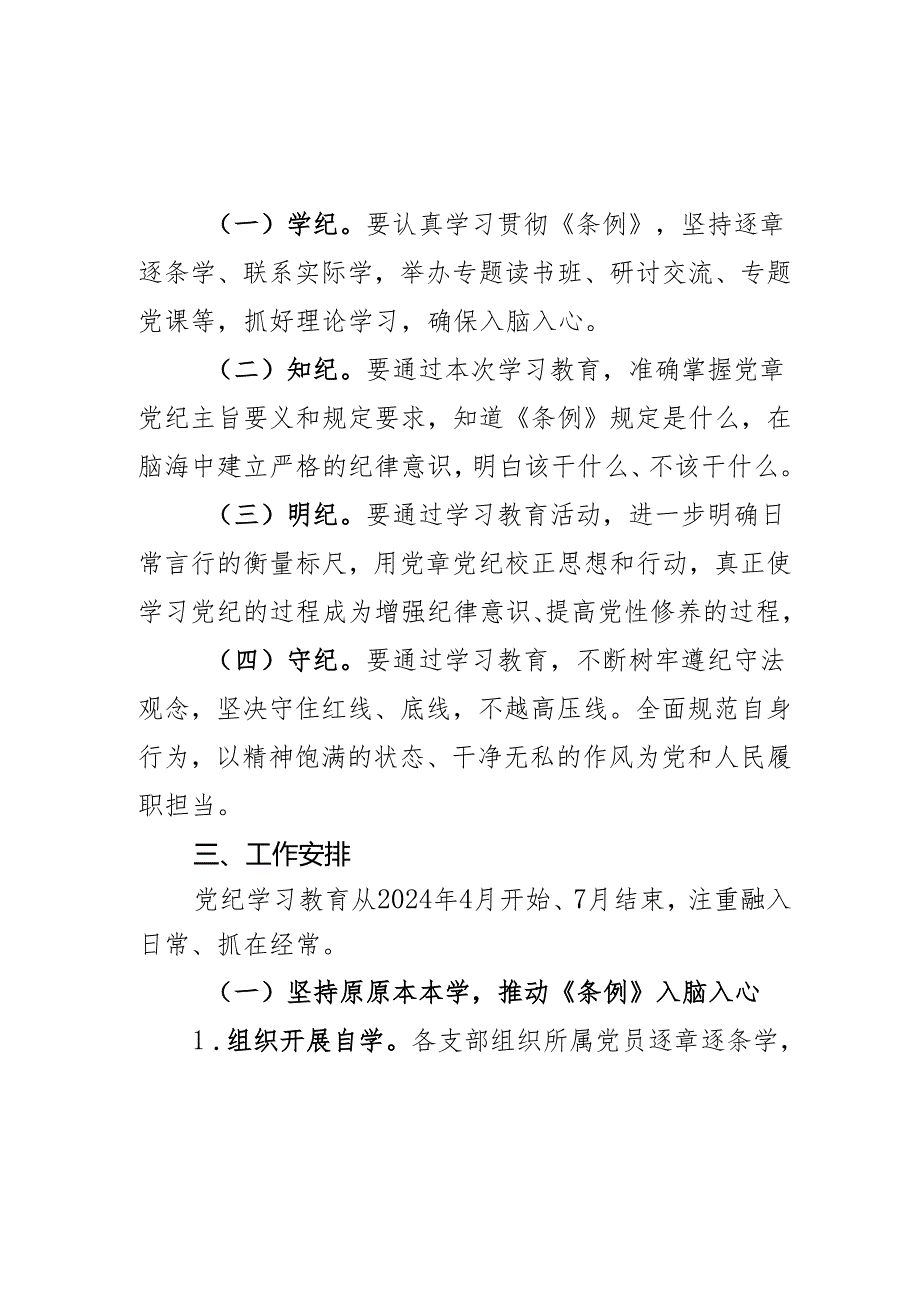 （一）学纪。要认真学习贯彻《条例》，坚持逐章
逐条学、联系实际学，举办专题读书班、研讨交流、专题
党课等，抓好理论学习，确保入脑入心。
（二）知纪。要通过本次学习教育，准确掌握党章
党纪主旨要义和规定要求，知道《条例》规定是什么，在
脑海中建立严格的纪律意识，明白该干什么、不该干什么。
（三）明纪。要通过学习教育活动，进一步明确日
常言行的衡量标尺，用党章党纪校正思想和行动，真正使
学习党纪的过程成为增强纪律意识、提高党性修养的过程，
（四）守纪。要通过学习教育，不断树牢遵纪守法
观念，坚决守住红线、底线，不越高压线。全面规范自身
行为，以精神饱满的状态、干净无私的作风为党和人民履
职担当。
三、工作安排
党纪学习教育从2024年4月开始、7月结束，注重融入
日常、抓在经常。
（一）坚持原原本本学，推动《条例》入脑入心
1.组织开展自学。各支部组织所属党员逐章逐条学，